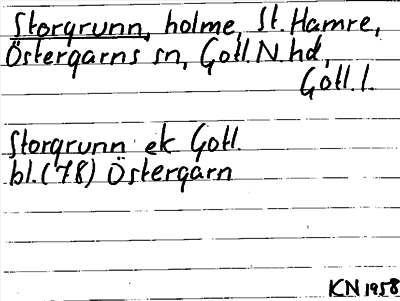 Storgrunn, holme, St. Hamre,
Östergarns sn, Gotl. N. hd,
Gotl. l.
Storgrunn ek Gotl.
bl. (78) Östergarn
KN 1958